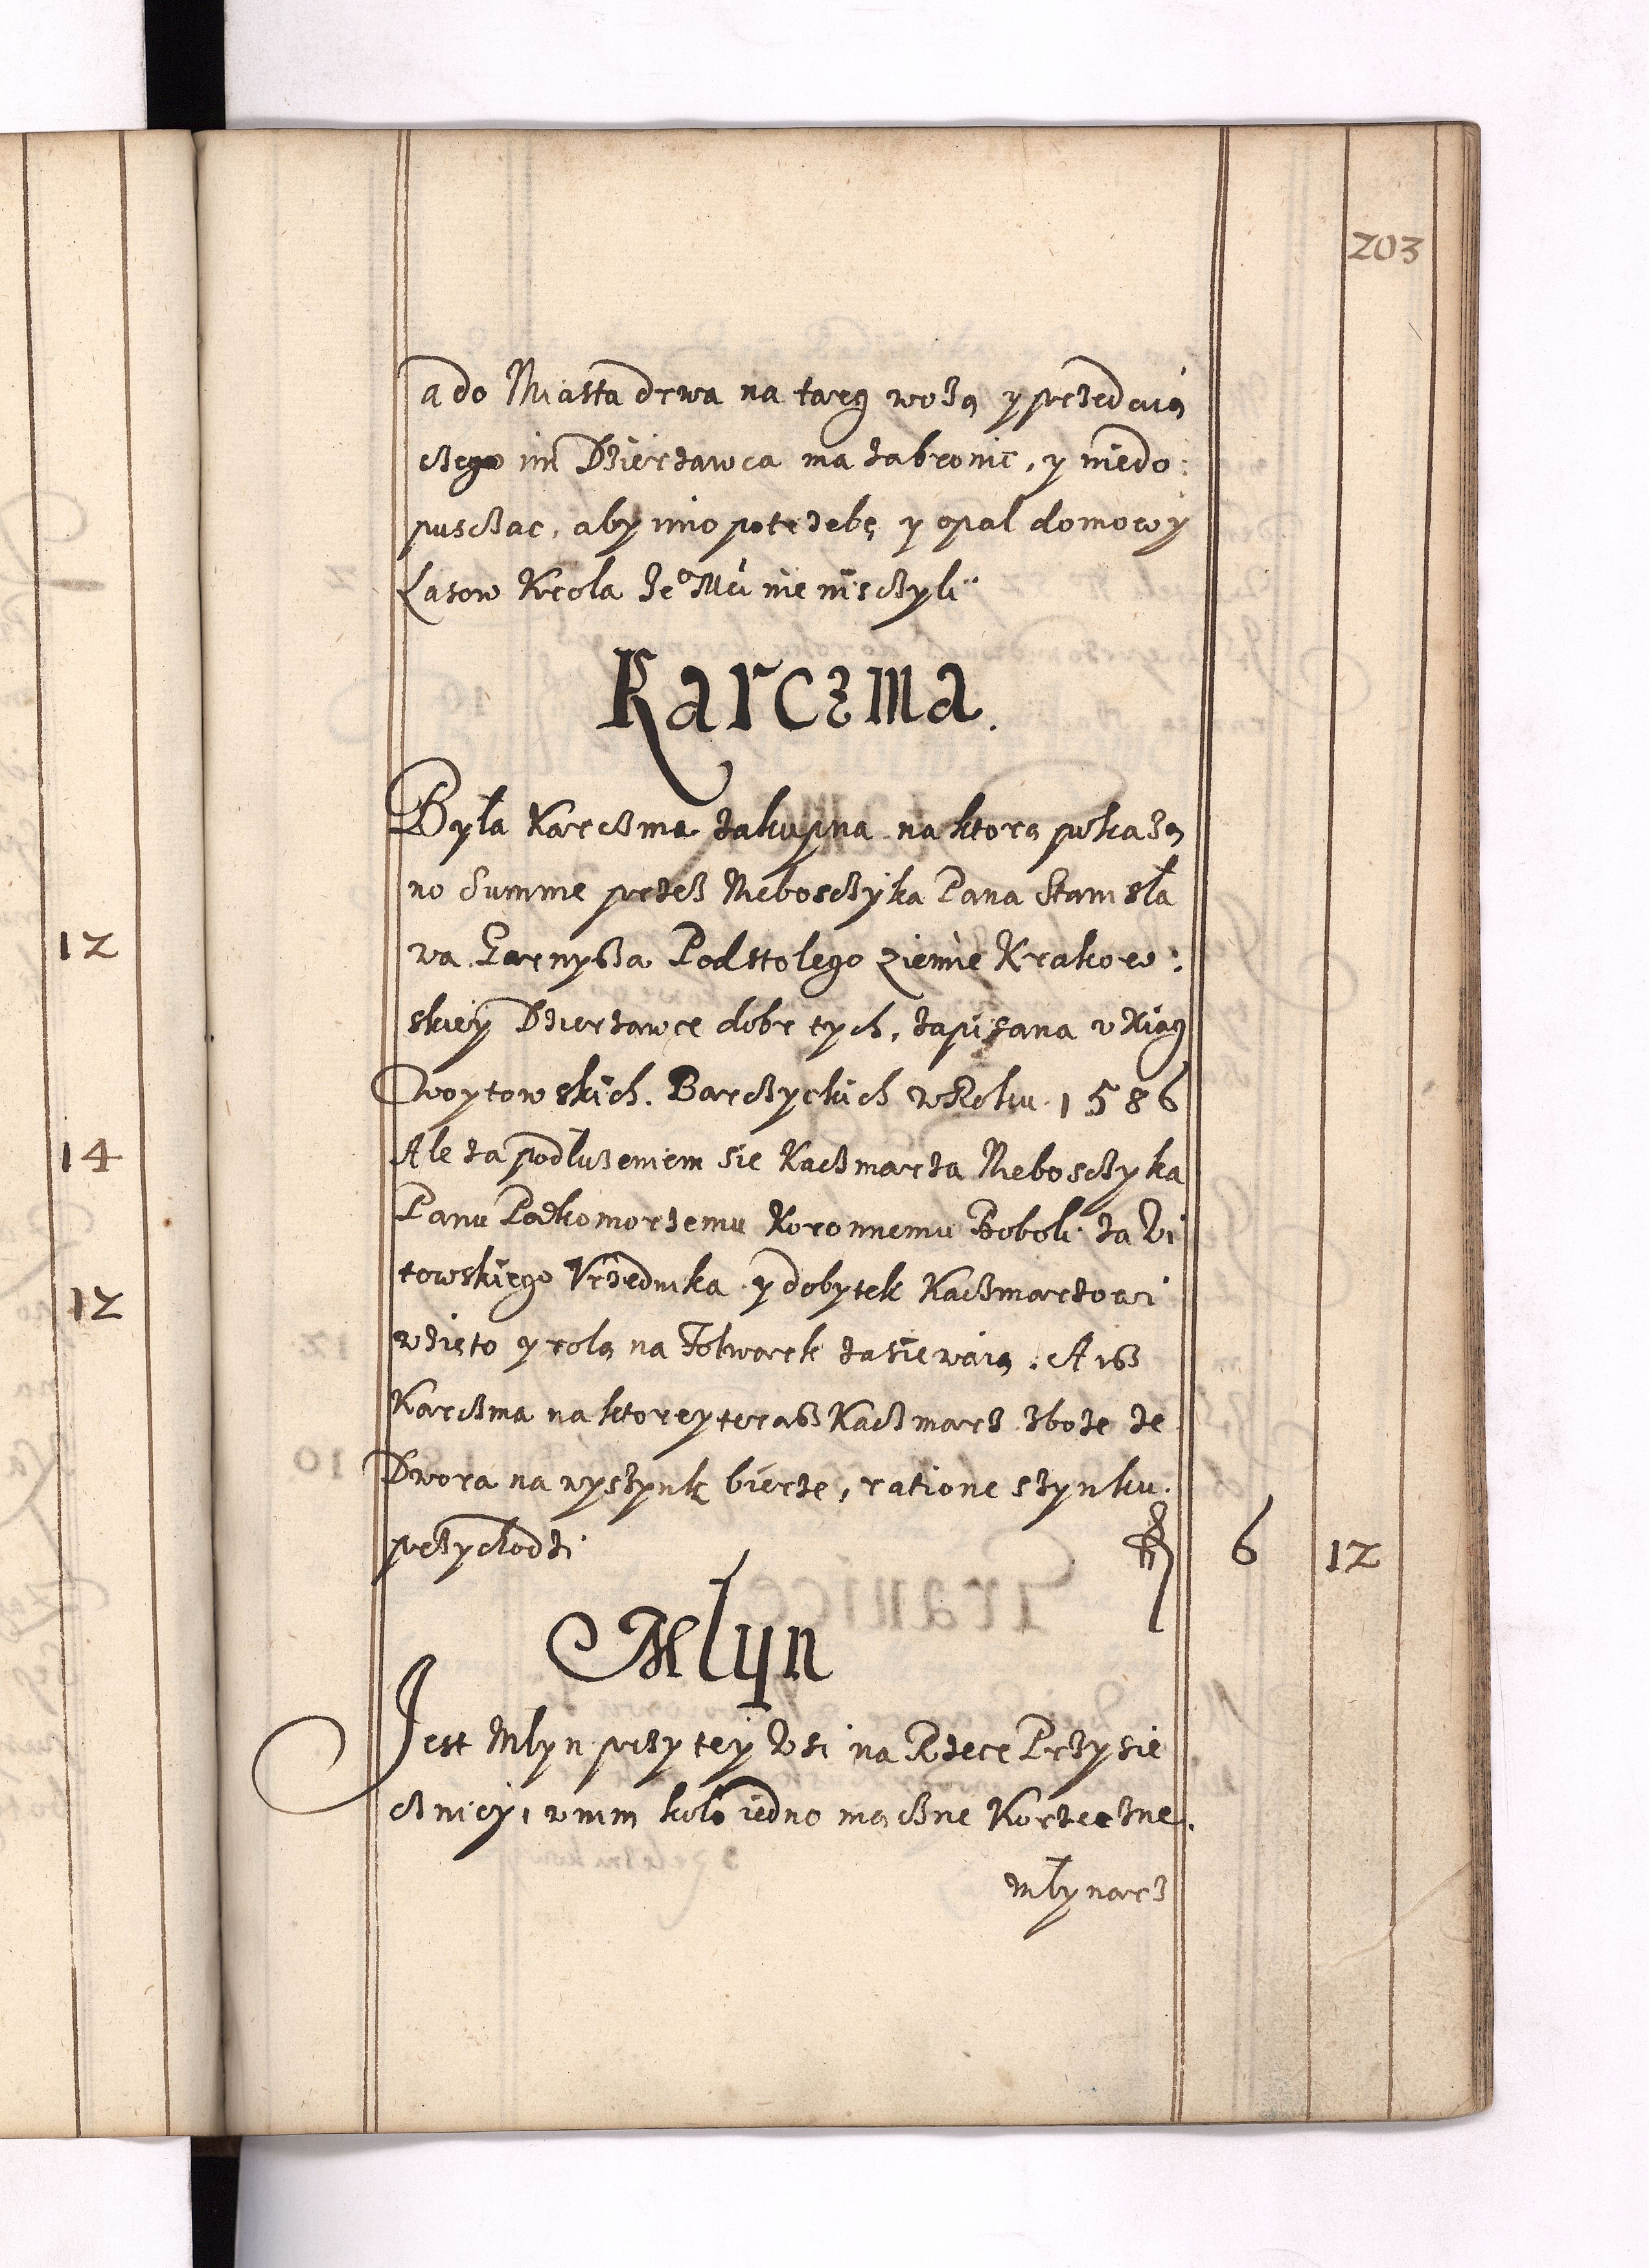 203
a do Miasta drwa na targ wożą y przedaią
czego im Dzierzawca ma zabronic, y niedo:
pusczac, aby imo potrzebę y opal domowy
Lasow Krola Je° Mći nie nisczyli
Karczma.
Była Karczma zakupna na ktorą pokaza
no Summe przez Nieboscżyka Pana Stanisła
wa Garnysza Podstolego ziemie Krakow:
skiey Dzierzawce dobr tych, zapisana v Xiąg
Woytowskich. Barczyckich w Roku 1586
Ale za podłużeniem sie Kaczmarza Nieboscżyka
Panu Podkomorzemu Koronnemu Boboli za Wi
towskiego Vrzednika y dobytek Kaczmarzowi
wzięto y rolą na Folwark zasiewaią. A isz
Karczma na ktorey terasz Kaczmarz zboże ze
Dwora na wyszynk bierze, ratione szynku.
przychodzi fl 6 12
Mlyn
Jest Mlyn przy tey Wsi na Rzece Przysie
cznicy, w nim koło iedno mączne Korzeczne.
Młynarz
12
14
12